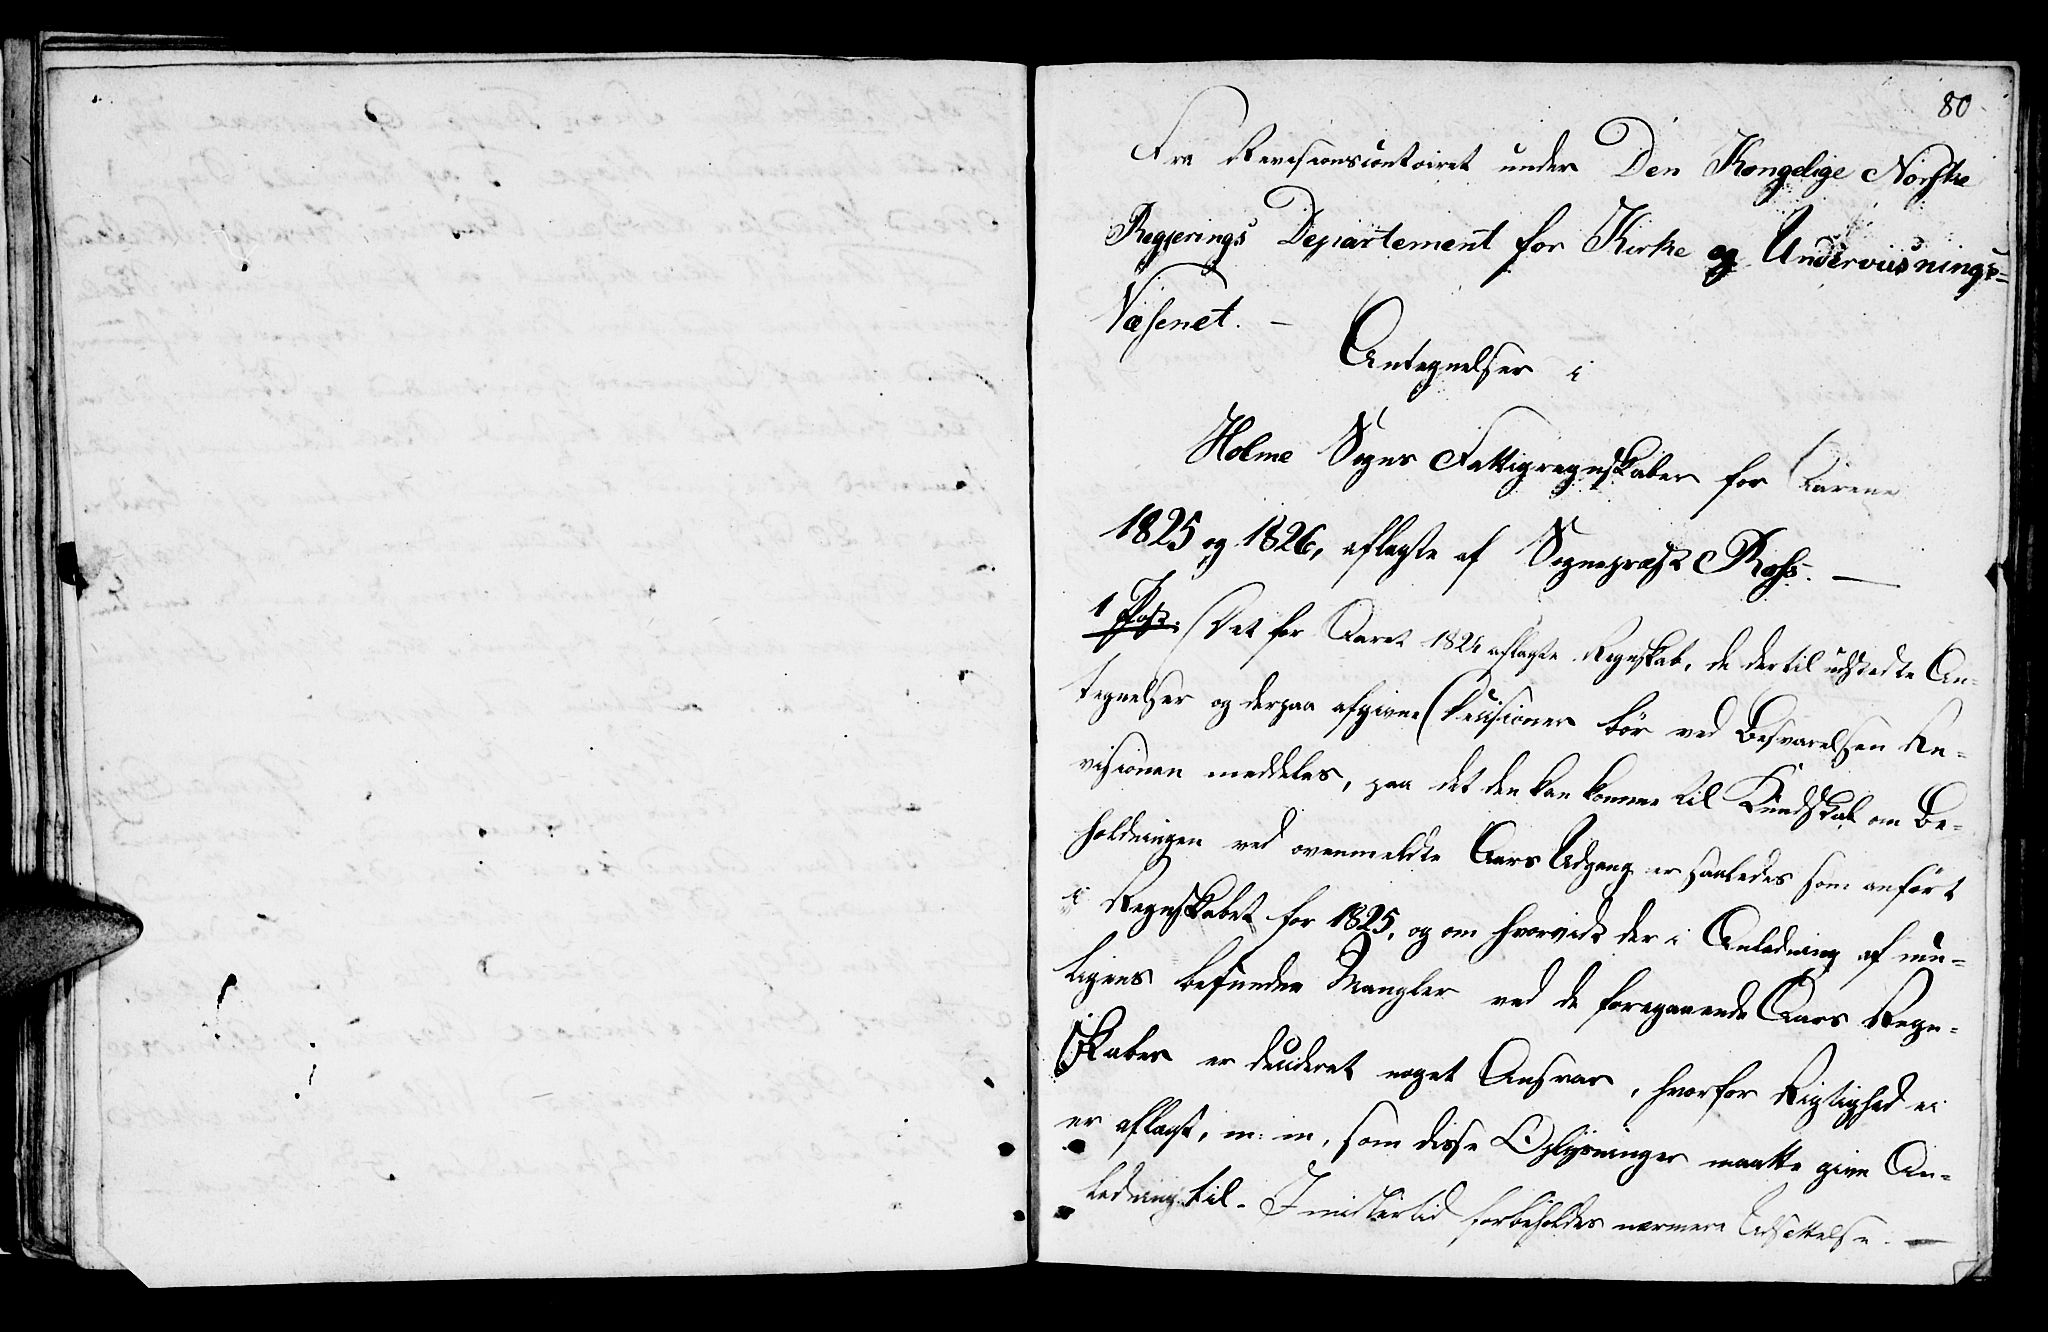 80
Fra Revisionscontoiret under Den Kongelige Norske
Regjerings Departement for Kirke og Underviisnings=
Væsenet. —
Antegnelser i
Holme Sogns Fattigregnskaber for Aarene
1825 og 1826, aflagte af Sognepræst Ross. —
1 Post. Det for Aaret 1824 aflagte Regnskab, de dertil udstedte An-
tegnelser og derpaa afgivne Decisioner bør ved Besvarelsen Re-
visionen meddeles, paa det den kan komme til Kundskab om Be-
holdningen ved ovenmeldte Aars Udgang er saaledes som anført
i Regnskabet for 1825, og om hvorvidt der i Anledning af mu-
ligens befundne Mangler ved de foregaaende Aars Regn-
skaber er decideret noget Ansvar, hvorfor Rigtighed ei
er aflagt, m: m, som disse Oplysninger maatte give An-
ledning til. Imidlertid forbeholdes nærmere Udsættelse. —